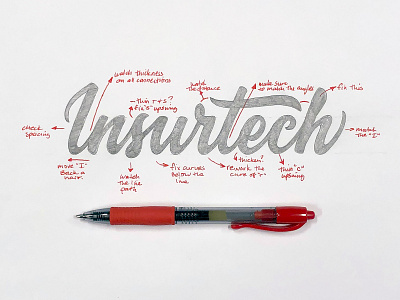 watch thickness
on all connections
thin r+s?
fix "s" opening
watch
the distance
make sure
to match the angles
fix this
Insurtech
check
spacing
match
the "I"
move "I"
back a
hair.
watch
the line
path
fix curves
below the
line
thicken?
rework the
curve of "r"
thin "c"
opening